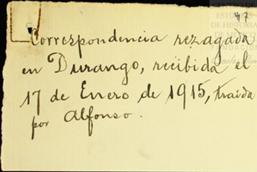 47
Correspondencia rezagada
en Durango, recibida el
17 de Enero de 1915, traida
por Alfonso.